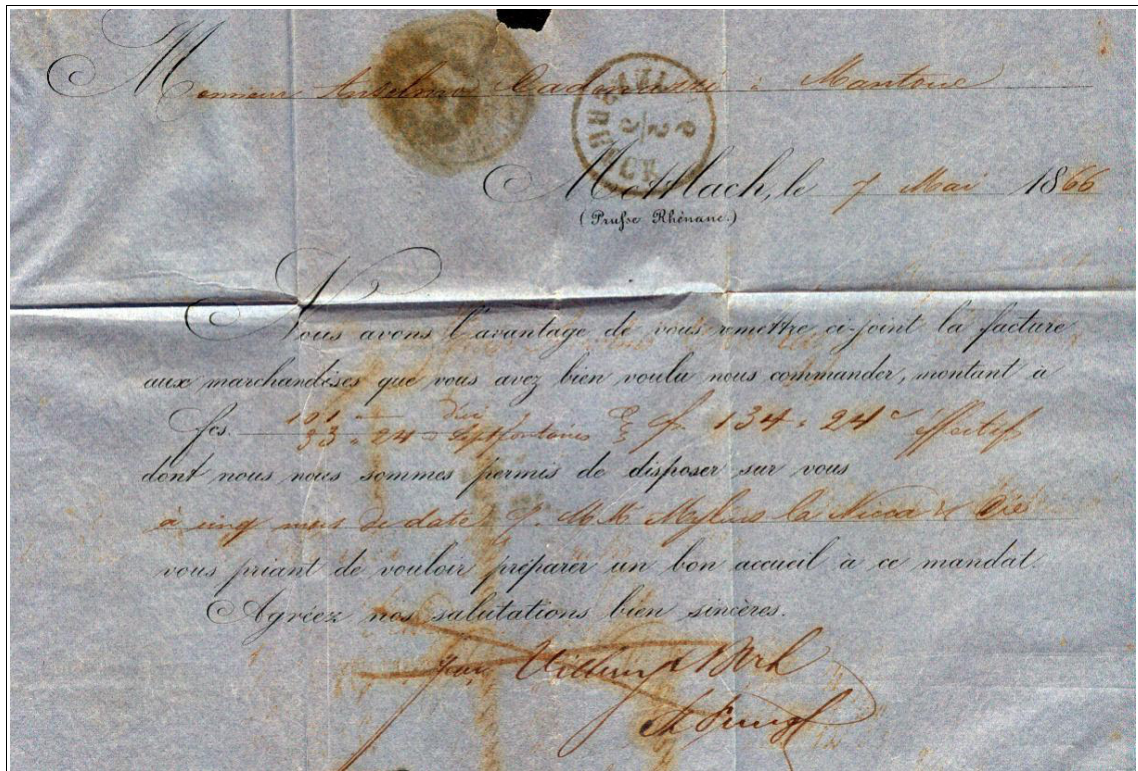 Monsieur Anselmo à Mantoue
Mettlach, le 7 Mai 1866
(Prusse Rhénane.)
Nous avons l'avantage de vous remettre ci-joint la facture
aux marchandises que vous avez bien voulu nous commander, montant à
fcs. 101 33 " 24 Septfontaines f. 134 " 24 c effectif
dont nous nous sommes permis de disposer sur vous
à cinq mois de date Mylius & Cie
vous priant de vouloir préparer un bon accueil à ce mandat.
Agréez nos salutations bien sincères.
pour Villeroy & Boch